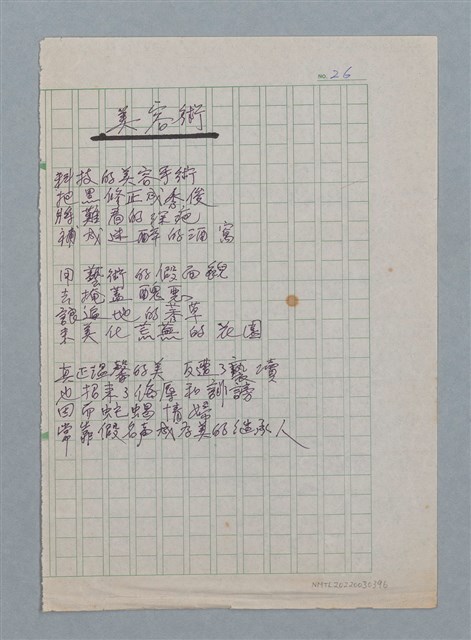 NO. 26
美容術
科技的美容手術
把黑修正成秀俊
將難看的深疤
補成迷醉的酒窩
用藝術的假面貌
去掩蓋醜惡
讓遍地的莠草
來美化荒蕪的花園
真正溫馨的美 反遭了褻瀆
也招來了侮辱和訕謗
因而蛇蝎情婦
常靠假名而成為美的繼承人
NMTL20220030396